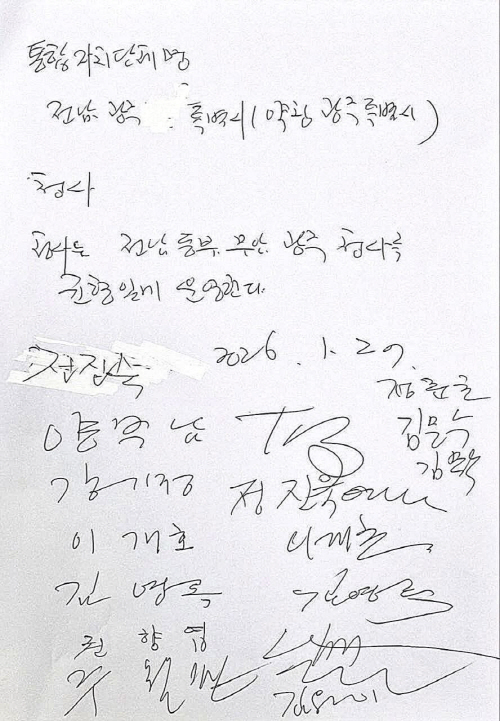 통합 자치단체명
전남 광주 특별시 (약칭 광주특별시)
청사
청사는 전남 동부, 무안, 광주 청사를
균형있게 운영한다.
전진숙 2026. 1. 29.
정준호
양부남
김문수
강기정 정진욱
이개호 이개호
김영록 김영록
권향엽
주철현